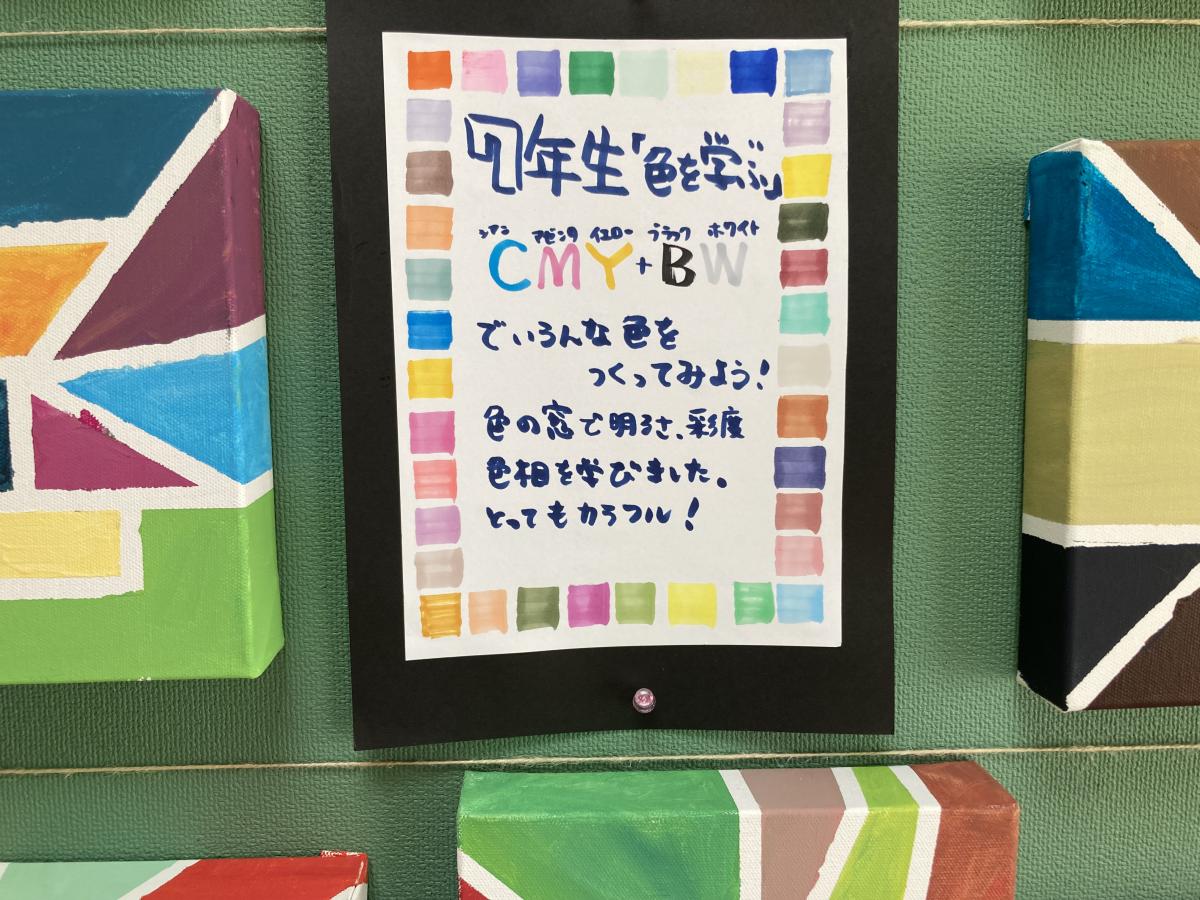 7年生「色を学ぶ」
シアン マゼンタ イエロー ブラック ホワイト
CMY+BW
でいろんな色を
つくってみよう!
色の窓で明るさ、彩度
色相を学びました。
とってもカラフル!